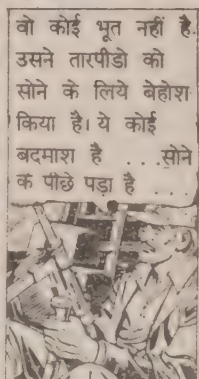 वो कोई भूत नहीं है.
उसने तारपीडो को
सोने के लिये बेहोश
किया है। ये कोई
बदमाश है ...सोने
के पीछे पड़ा है ...